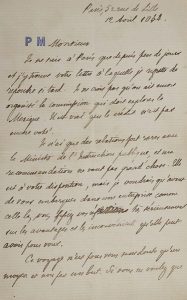 Paris 52 rue de Lille
1er Avril 1864.
P M Monsieur
Je ne suis à Paris que depuis peu de jours
et j'y trouve votre lettre à laquelle je regrette de
répondre si tard. Je ne crois pas qu'on ait encore
organisé la commission qui doit explorer le
Mexique. Il est vrai que le crédit n'est pas
encore voté.
Je n'ai que des relations fort rares avec
le Ministre de l'Instruction publique, et ma
recommandation ne vaut pas grand chose. Elle
est à votre disposition, mais je voudrais qu'avant
de vous embarquer dans une entreprise comme
celle là, vous
sur les avantages et les inconvénients qu'elle peut
avoir pour vous.
Ce voyage n'est pour vous sans doute qu'un
moyen et non pas un but. Si vous ne voulez que